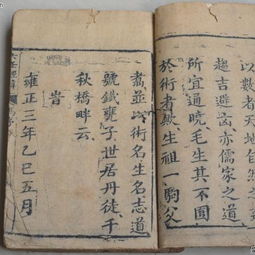 以數者天地自然之
趨吉避凶亦儒家之道
所宜通曉毛生其不固
於術者歟生祖一駒父
耆並以術名生名志道
號鐵甕子世居丹徒千
秋橋畔云
旹
雍正三年乙巳五月